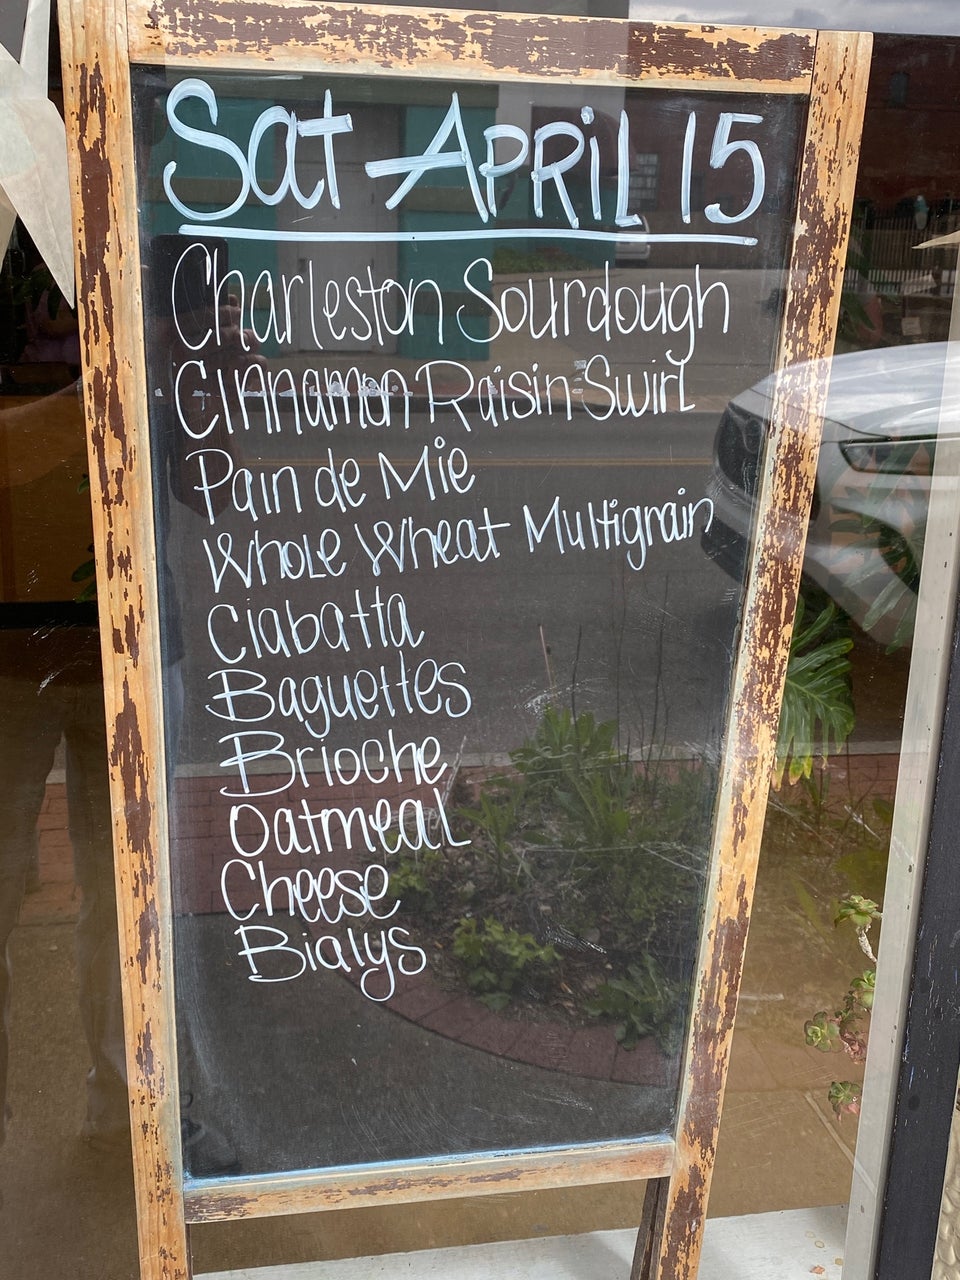 Sat April 15
Charleston Sourdough
Cinnamon Raisin Swirl
Pain de Mie
Whole Wheat Multigrain
Ciabatta
Baguettes
Brioche
Oatmeal
Cheese
Bialys